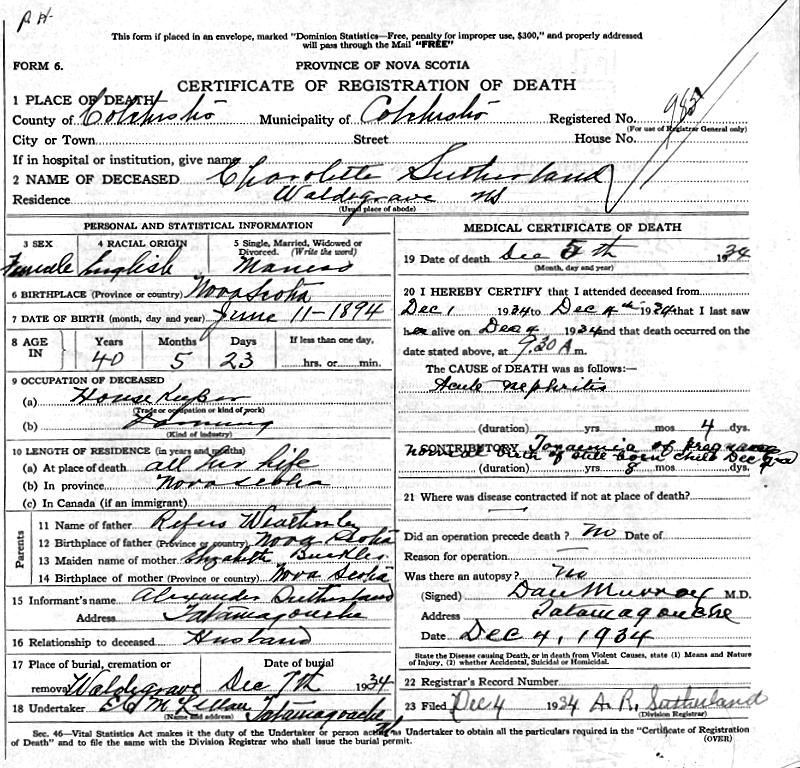 P. H.
This form if placed in an envelope, marked "Dominion Statistics—Free, penalty for improper use, $300," and properly addressed
will pass through the Mail "FREE"
FORM 6. PROVINCE OF NOVA SCOTIA
CERTIFICATE OF REGISTRATION OF DEATH
1 PLACE OF DEATH
County of Colchester Municipality of Colchester Registered No. 985
(For use of Registrar General only)
City or Town Street House No.
If in hospital or institution, give name
2 NAME OF DECEASED Charolette Sutherland
Residence Waldegrave NS
(Usual place of abode)
PERSONAL AND STATISTICAL INFORMATION
3 SEX 4 RACIAL ORIGIN 5 Single, Married, Widowed or
Divorced. (Write the word)
Female English Married
6 BIRTHPLACE (Province or country) Nova Scotia
7 DATE OF BIRTH (month, day and year) June 11-1894
8 AGE IN Years Months Days If less than one day,
40 5 23 hrs. or min.
9 OCCUPATION OF DECEASED
(a) House Keeper
(Trade or occupation or kind of work)
(b) Farming
(Kind of industry)
10 LENGTH OF RESIDENCE (in years and months)
(a) At place of death all her life
(b) In province Nova Scotia
(c) In Canada (if an immigrant)
Parents
11 Name of father Weatherby
12 Birthplace of father (Province or country) Nova Scotia
13 Maiden name of mother Elizabeth Buckles
14 Birthplace of mother (Province or country) Nova Scotia
15 Informant's name Alexander Sutherland
Address Tatamagouche
16 Relationship to deceased Husband
17 Place of burial, cremation or Date of burial
removal Waldegrave Dec 7th 1934
18 Undertaker Ed McLellan Tatamagouche
(Name and address)
MEDICAL CERTIFICATE OF DEATH
19 Date of death Dec 5th 1934
(Month, day and year)
20 I HEREBY CERTIFY that I attended deceased from
Dec 1 1934 to Dec 4th 1934 that I last saw
her alive on Dec 4 1934 and that death occurred on
date stated above, at 9.30 A m.
The CAUSE of DEATH was as follows:—
Acute Nephritis
(duration) yrs mos 4 dys.
CONTRIBUTORY Toxaemia of Pregnancy
normal birth of still born child Dec
(duration) yrs 8 mos dys.
21 Where was disease contracted if not at place of death?
—
Did an operation precede death? No Date of
Reason for operation —
Was there an autopsy? No
(Signed) Dan Murray M.D.
Address Tatamagouche
Date Dec 4, 1934
State the Disease causing Death, or in death from Violent Causes, state (1) Means and Nature
of Injury, (2) whether Accidental, Suicidal or Homicidal.
22 Registrar's Record Number
23 Filed Dec 4 1934 A. R. Sutherland
(Division Registrar)
Sec. 46—Vital Statistics Act makes it the duty of the Undertaker or person acting as Undertaker to obtain all the particulars required in the "Certificate of Registration
of Death" and to file the same with the Division Registrar who shall issue the burial permit. (OVER)